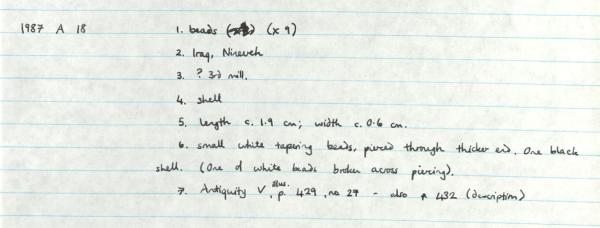 1987 A 18 1. beads (x 9)
2. Iraq, Nineveh
3. ? 3rd mill.
4. shell
5. length c. 1.9 cm; width c. 0.6 cm.
6. small white tapering beads, pierced through thicker end. One black
shell. (One of white beads broken across piercing).
7. Antiquity V, illus. p. 429, no 27 - also p 432 (description)